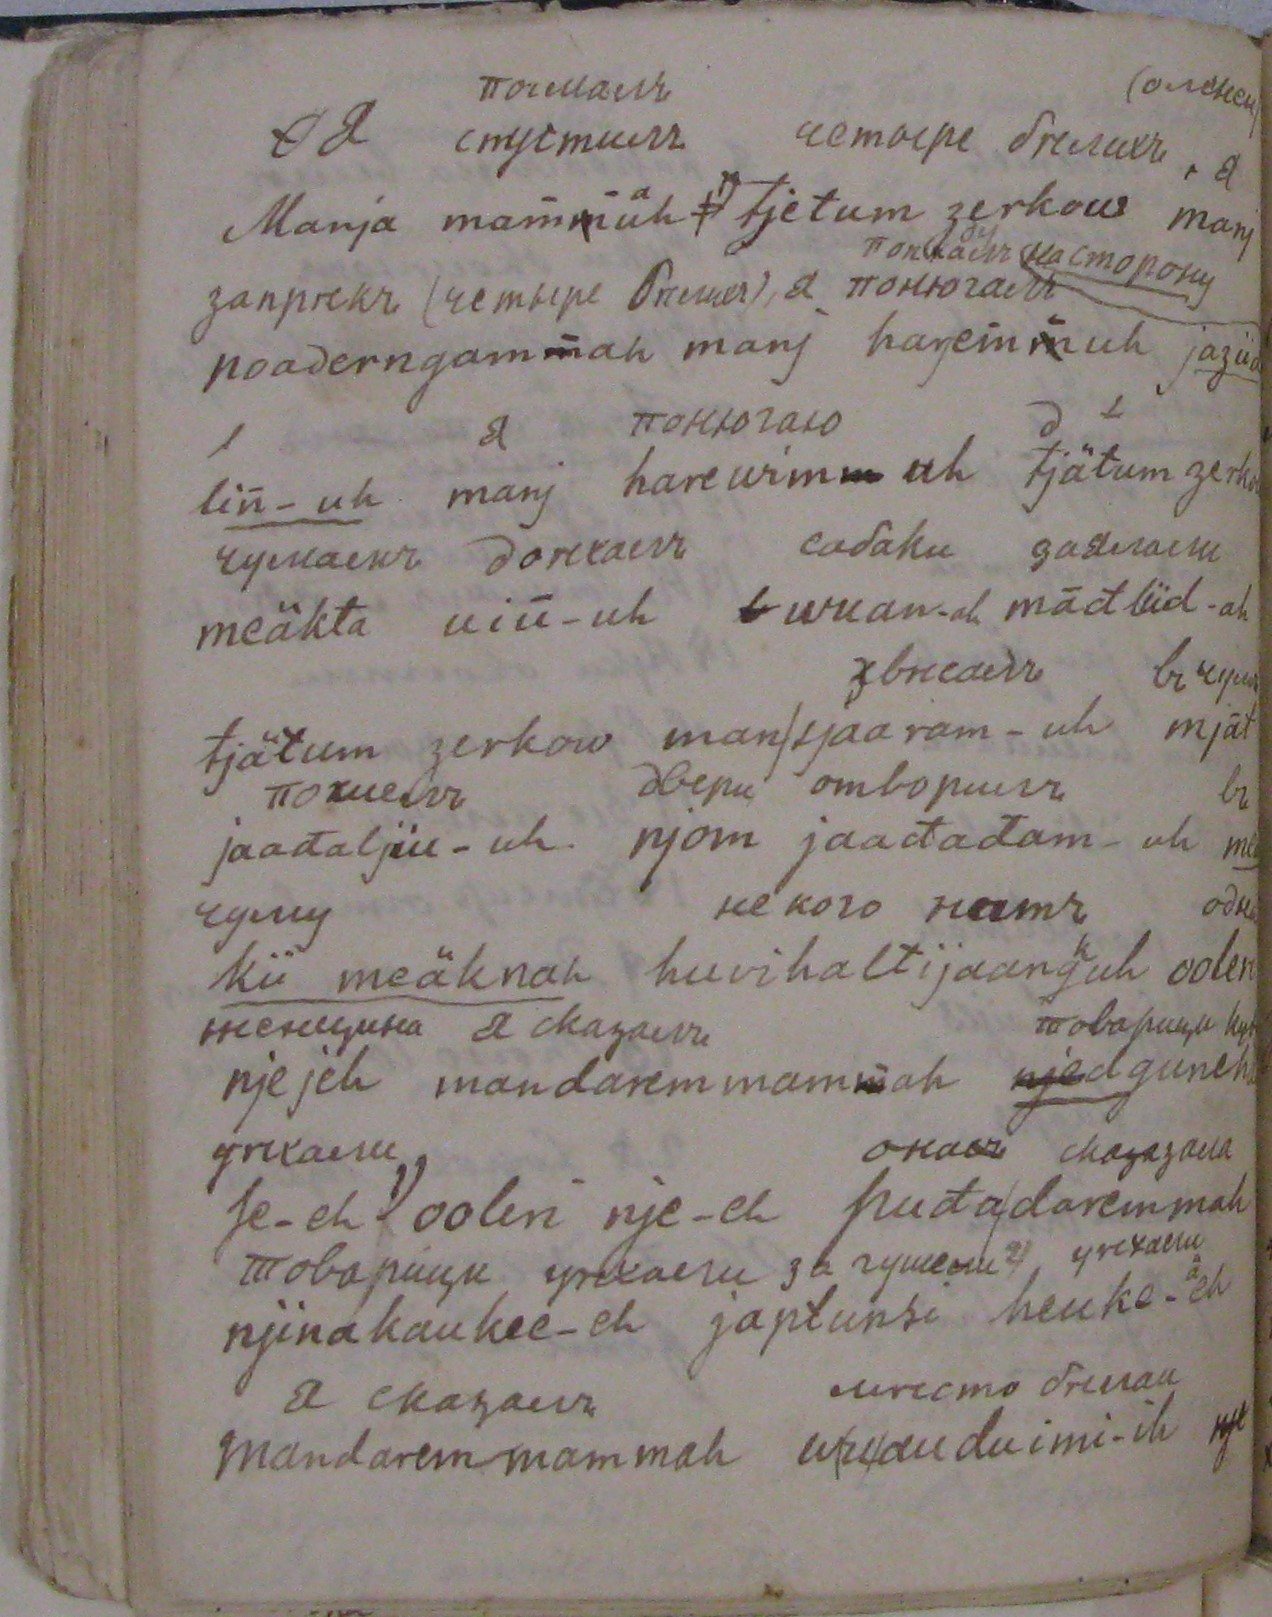 поималъ (оленей)
Я спустилъ четыре бѣлыхъ, я
Manja mammüh tjetum zerkow manj
погналъ на сторону
запрягъ (четыре бѣлыхъ), я понюгалъ
poaderngammah manj harejeinmuh jaziid
я понюгаю
lin̄-uh manj harewimm uh tjätum zerko
чумамъ доѣхалъ собаки залаяли
meäkta uiü-uh wuan-ah mādtlüd-ah
звѣсалъ въ чумъ
tjätum zerkow man/sjaaram-uh mjāt
пошелъ двери отворилъ въ
jaađaljüu-uh. njom jaađađam-uh me
чуму некого нѣтъ одна
küi meäknah huvihaltijaanguh oolen
женщина я сказалъ товарищи ку
njejeh mandaremmammah njedguneh
уѣхали, она сказазала
Je-eh oolen nje-eh puđa/daremmah
товарищи уѣхали за гушели уѣхали
njinakaukee-eh japtunsi heuke-eh
я сказалъ мѣсто бѣлаи
mandaremmammah uduimi-ih nje